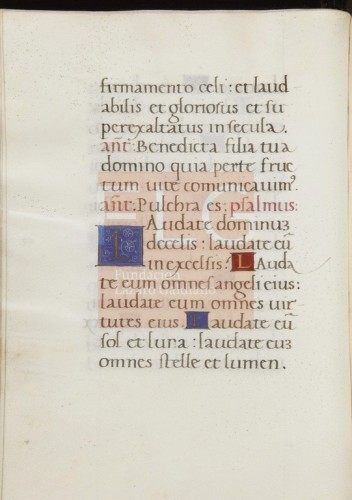 firmamento celi: et laud
abilis et gloriosus et su
perexaltatus in secula.
añt: Benedicta filia tu a
domino quia per te fruc
tum vite comunicavimꝰ.
añt: Pulchra es: psalmus:
Laudate dominuʒ
de celis: laudate eū
in excelsis. Lauda
te eum omnes angeli eius:
laudate eum omnes vir
tutes eius. Laudate eū
sol et luna: laudate euʒ
omnes stelle et lumen.
Fundación